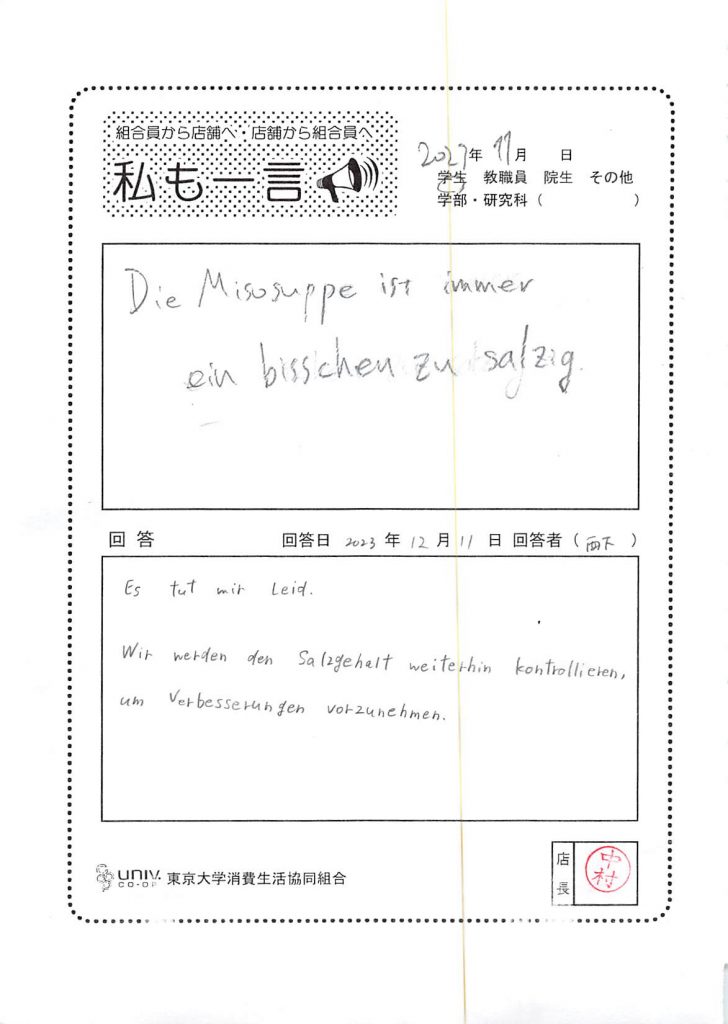 組合員から店舗へ・店舗から組合員へ
私も一言
2023年 11月 日
学生 教職員 院生 その他
学部・研究科 ( )
Die Misosuppe ist immer
ein bisschen zu salzig.
回答 回答日 2023 年 12 月 11 日 回答者 ( 西下 )
Es tut mir Leid.
Wir werden den Salzgehalt weiterhin kontrollieren,
um Verbesserungen vorzunehmen.
UNIV. CO-OP 東京大学消費生活協同組合
店長 中村